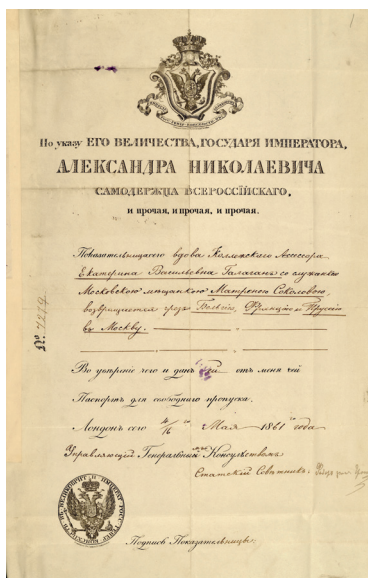 По указу ЕГО ВЕЛИЧЕСТВА, ГОСУДАРЯ ИМПЕРАТОРА,
АЛЕКСАНДРА НИКОЛАЕВИЧА
САМОДЕРЖЦА ВСЕРОССІЙСКАГО,
и прочая, и прочая, и прочая.
Показательница сего вдова Коллежскаго Ассесора
Екатерина Васильевна Галаган со служанкою
Московскою мѣщанкою Матреною Соколовою,
возвращается чрезъ Бельгію, Францію и Пруссію
въ Москву.
№ 7279.
Во увѣреніе чего и данъ ей отъ меня сей
Паспортъ для свободнаго пропуска.
Лондонъ сего 4/16 го Мая 1861 года
Управляющій Генеральнымъ Консульствомъ
Статскій Совѣтникъ
Подпись Показательницы: